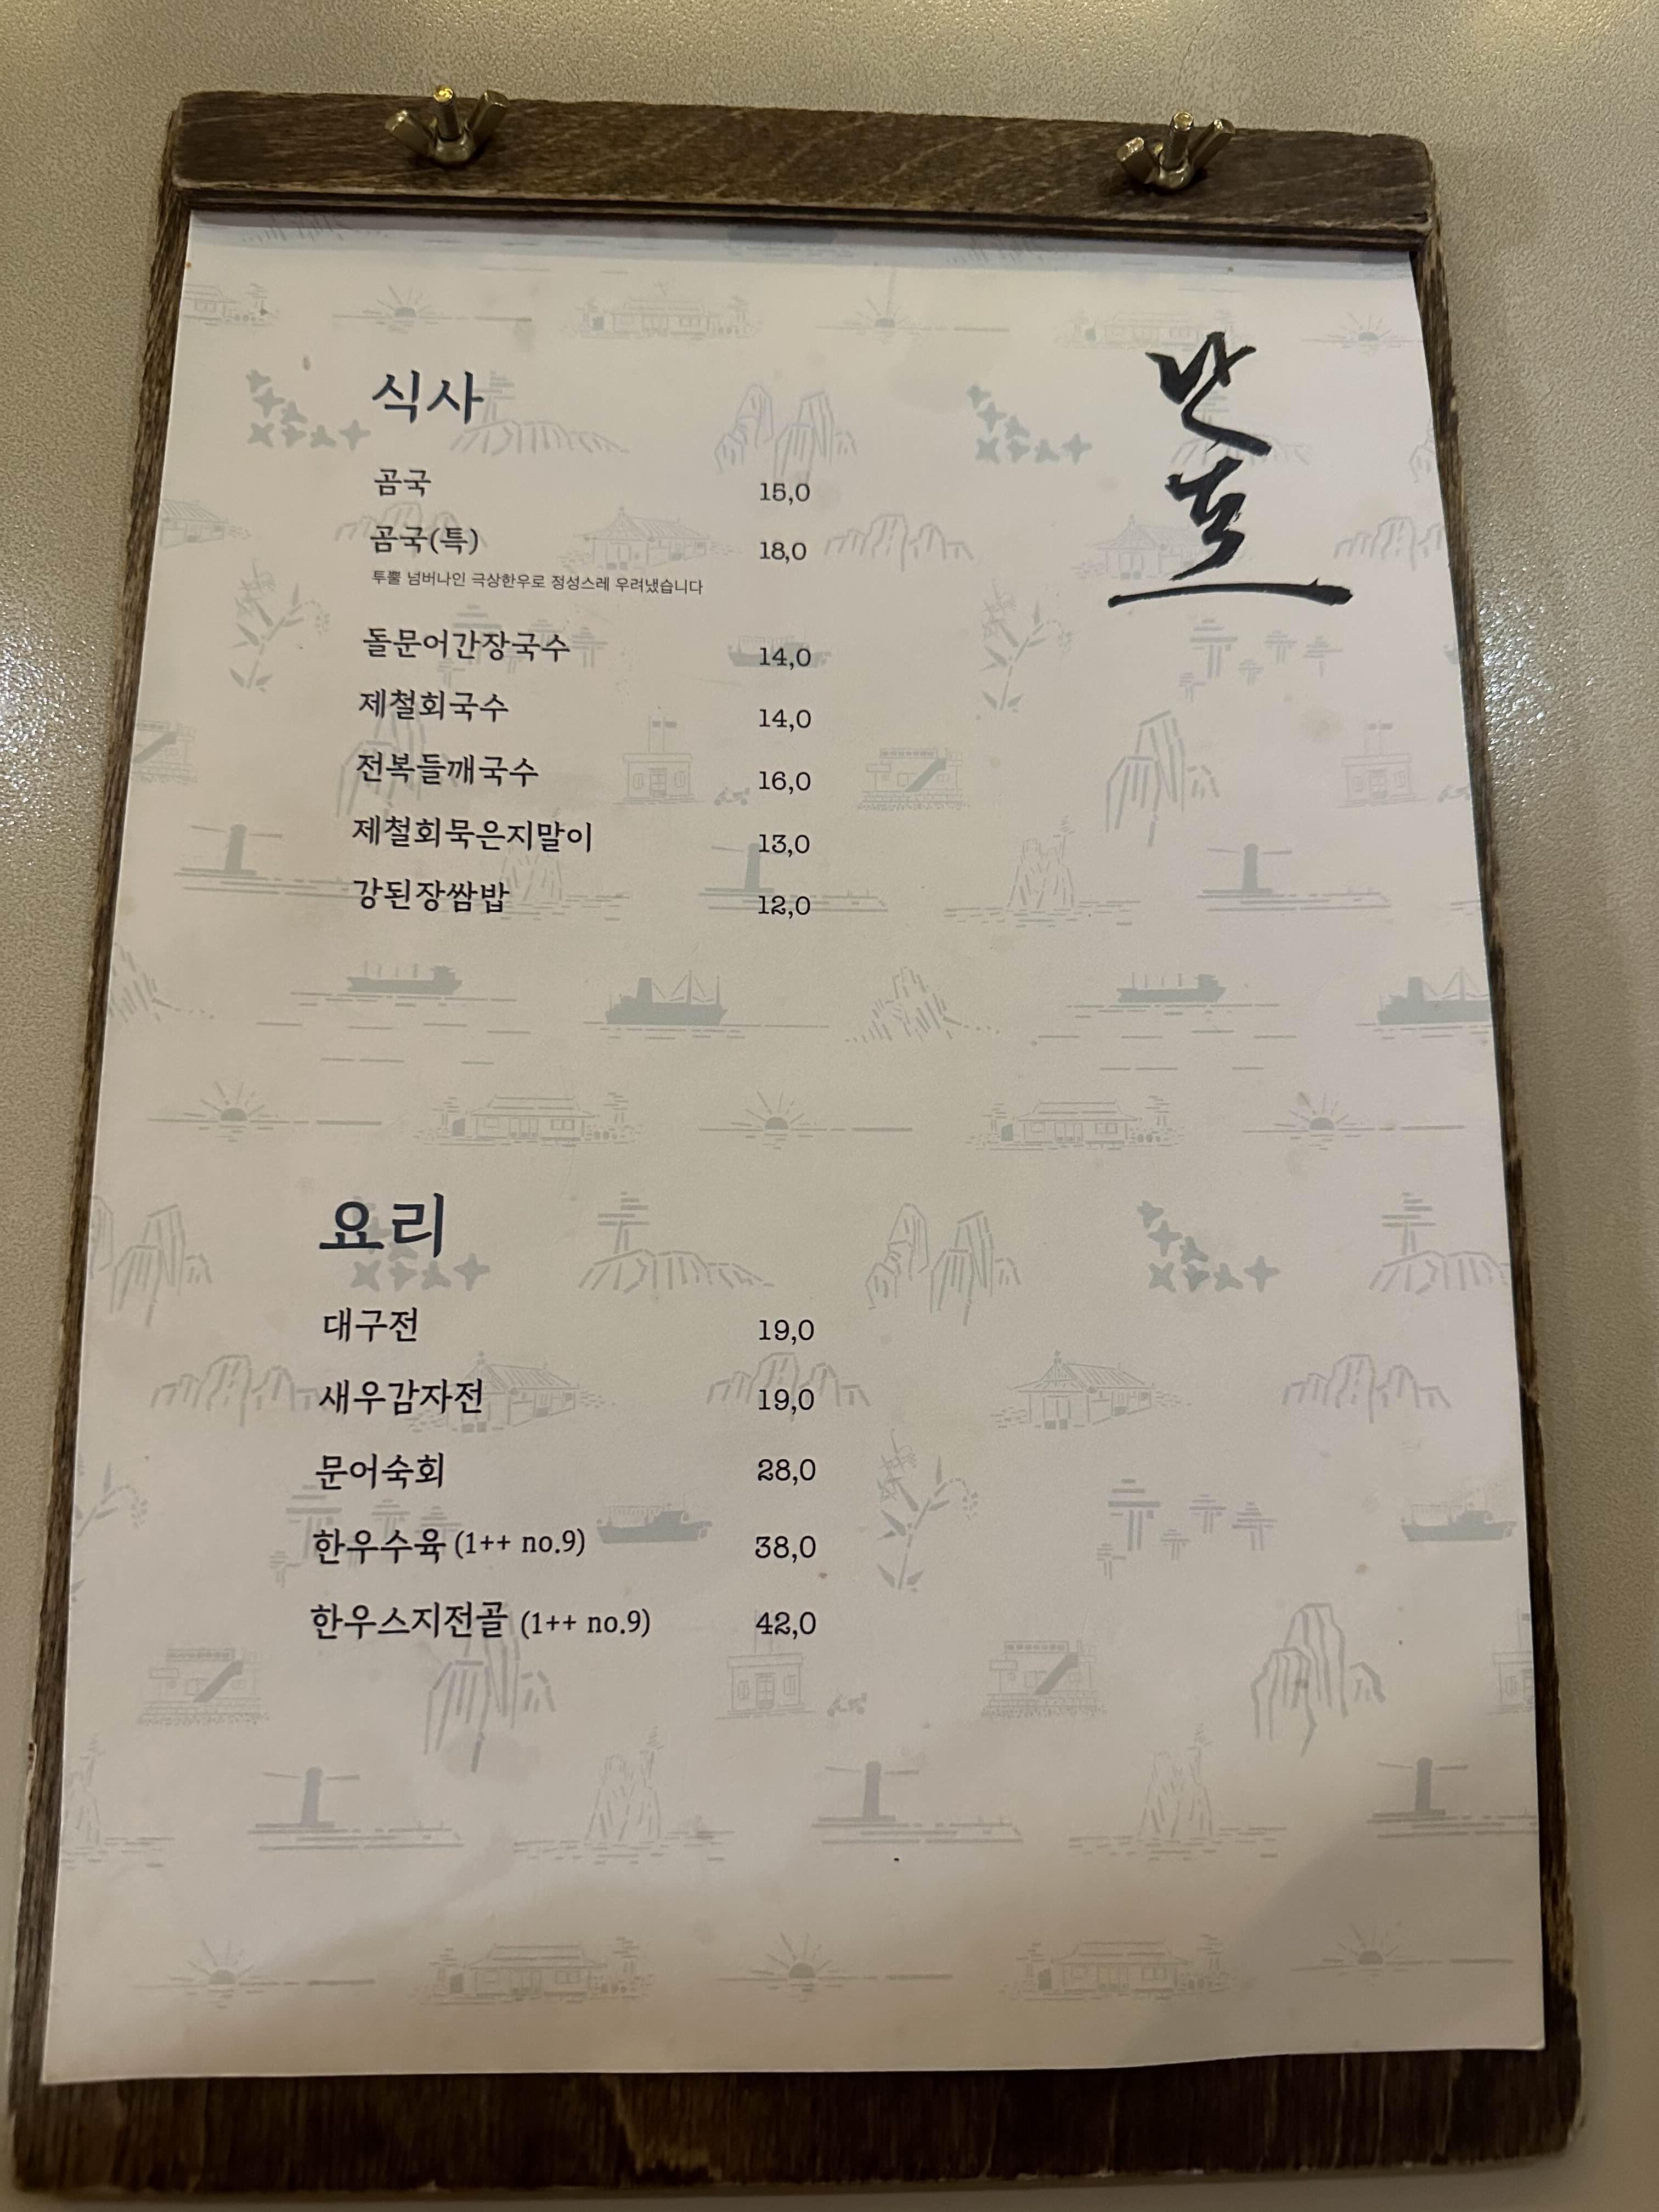 식사
곰국 15,0
곰국(특) 18,0
투뿔 넘버나인 극상한우로 정성스레 우려냈습니다
돌문어간장국수 14,0
제철회국수 14,0
전복들깨국수 16,0
제철회묵은지말이 13,0
강된장쌈밥 12,0
요리
대구전 19,0
새우감자전 19,0
문어숙회 28,0
한우수육 (1++ no.9) 38,0
한우스지전골 (1++ no.9) 42,0